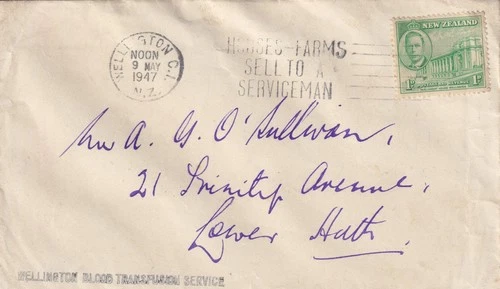 WELLINGTON C.1.
NOON
9 MAY
1947
N.Z.
HOUSES-FARMS
SELL TO A
SERVICEMAN
NEW ZEALAND
1D 1D
A. G. O'Sullivan,
21 Avenue,
Lower Hutt.
WELLINGTON BLOOD TRANSFUSION SERVICE